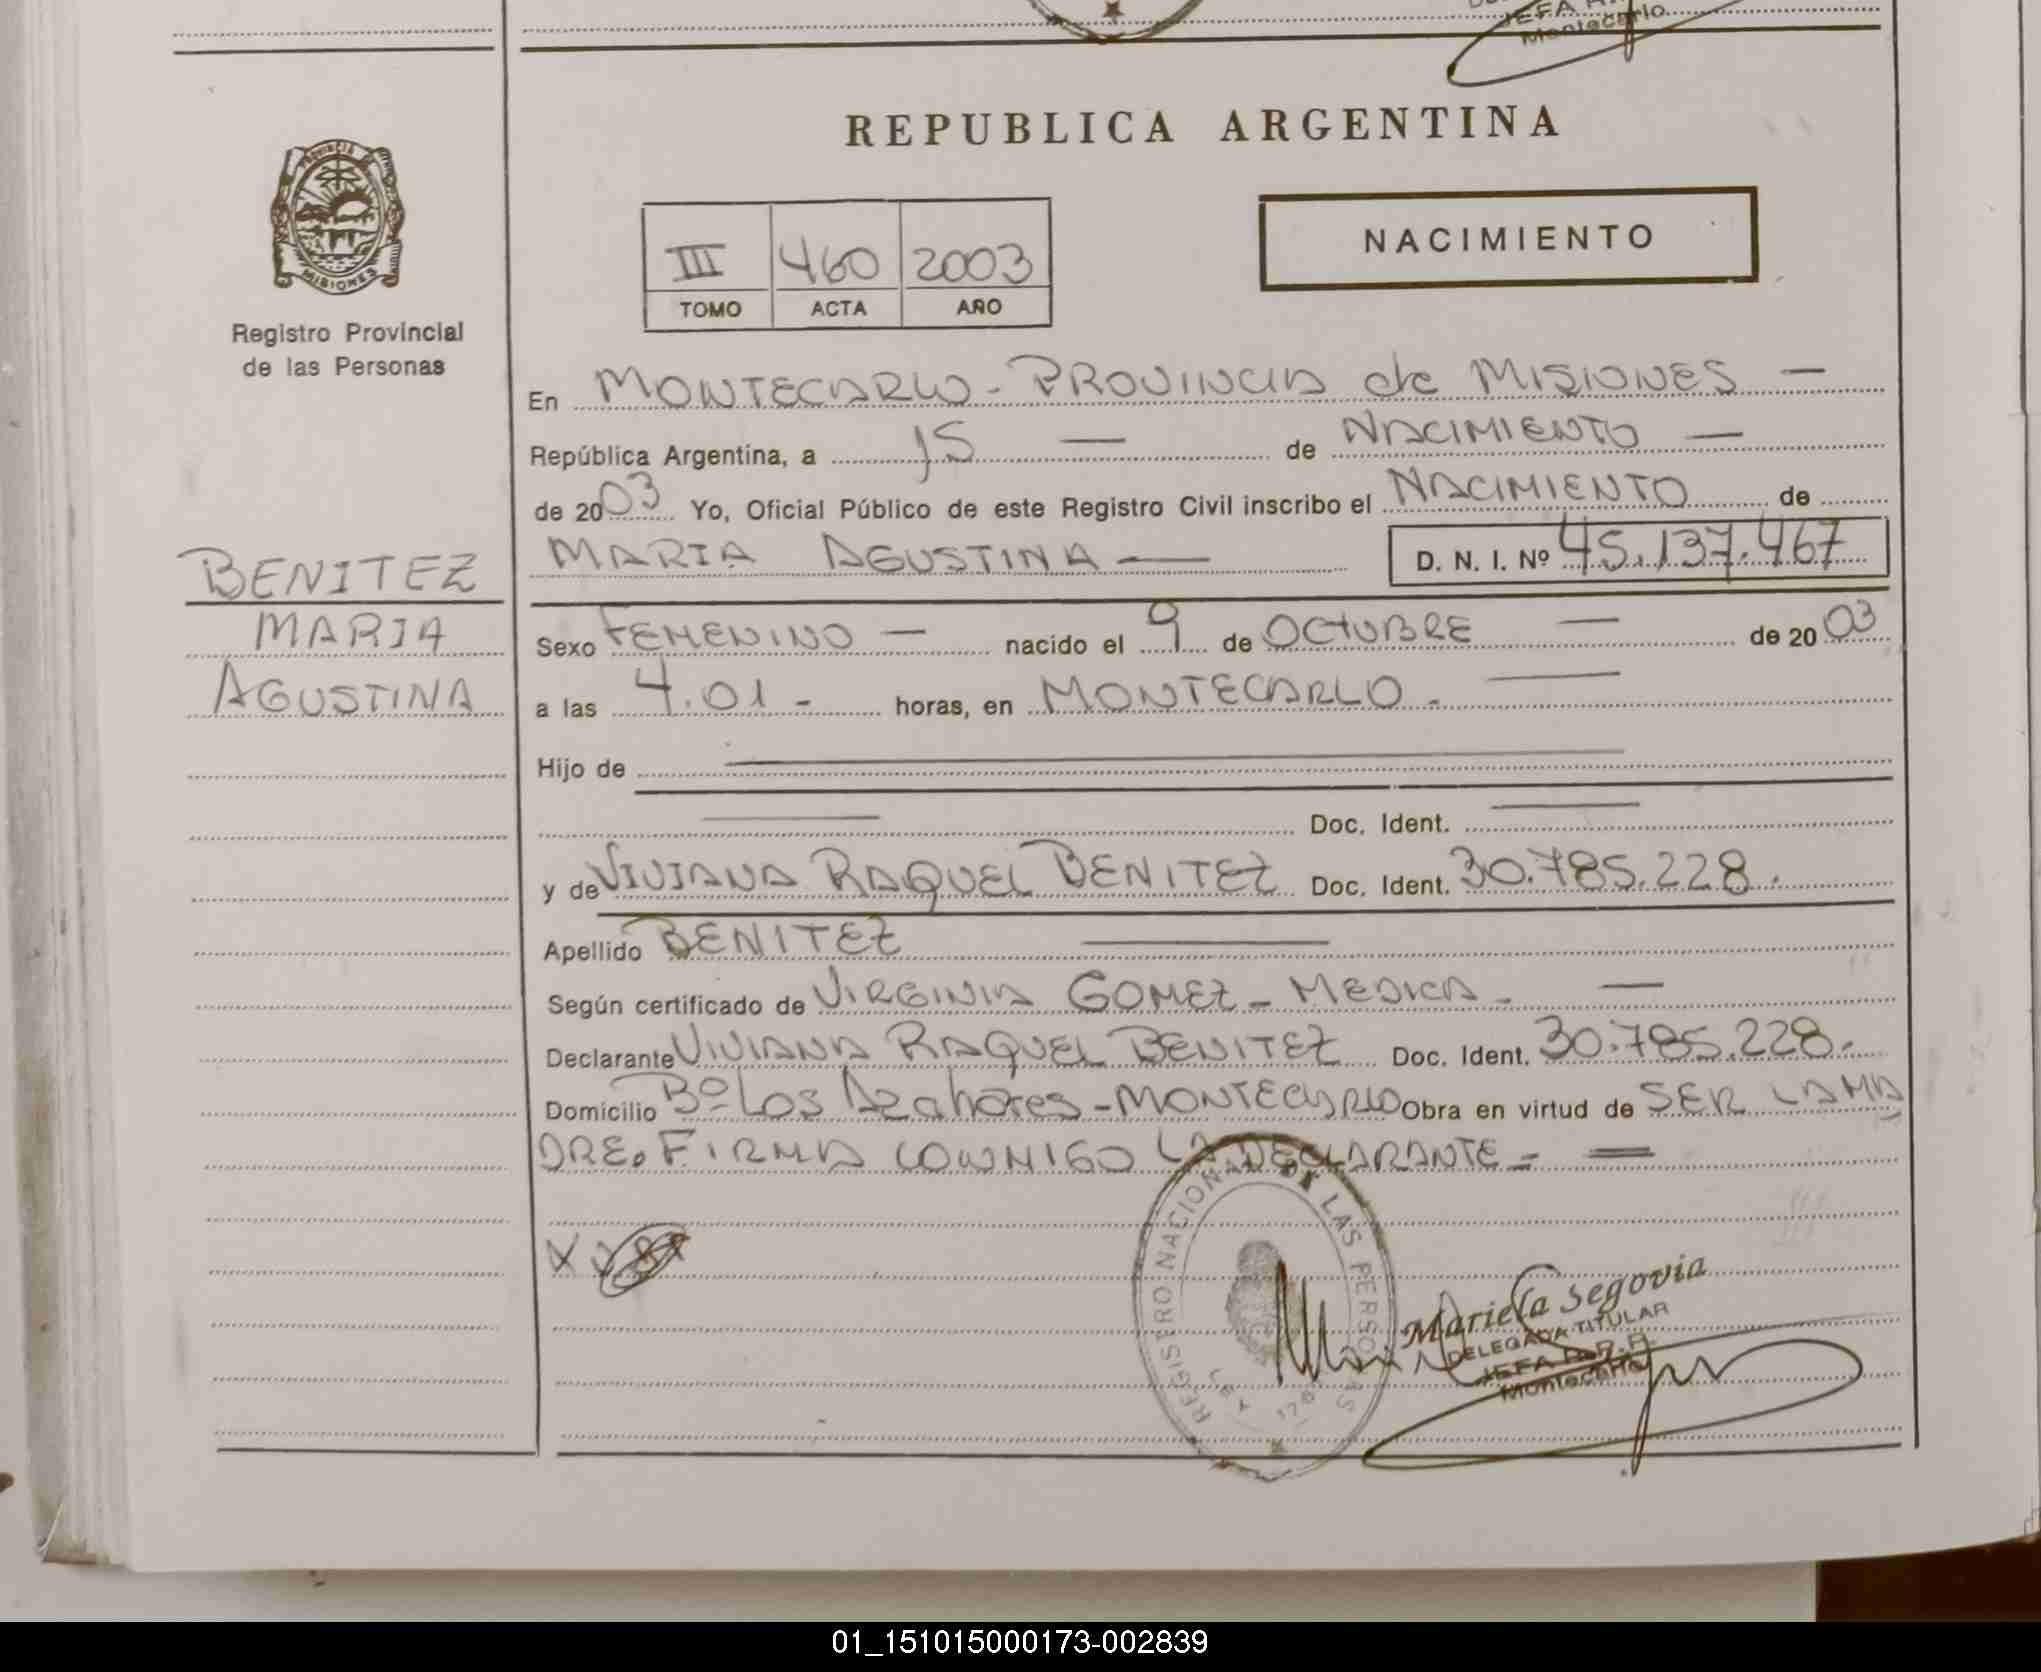 JEFA R.
Montecarlo
REPUBLICA ARGENTINA
PROVINCIA DE
MISIONES
Registro Provincial
de las Personas
III 460 2003
TOMO ACTA AÑO
NACIMIENTO
En MONTECARLO - PROVINCIA de MISIONES —
República Argentina, a 15 — de NACIMIENTO —
de 2003 Yo, Oficial Público de este Registro Civil inscribo el NACIMIENTO de
MARIA AGUSTINA — D. N. I. Nº 45.137.467
BENITEZ
MARIA
AGUSTINA
Sexo FEMENINO — nacido el 9 de OCTUBRE — de 2003
a las 4.01 - horas, en MONTECARLO. —
Hijo de —
— Doc. Ident. —
y de VIVIANA RAQUEL BENITEZ Doc. Ident. 30.785.228.
Apellido BENITEZ —
Según certificado de VIRGINIA GOMEZ - MEDICA - —
Declarante VIVIANA RAQUEL BENITEZ Doc. Ident. 30.785.228.
Domicilio Bº Los Azahares - MONTECARLO Obra en virtud de SER LA MA
DRE. FIRMA CONMIGO LA DECLARANTE = —
REGISTRO NACIONAL DE LAS PERSONAS
LEY
Mariela Segovia
DELEGADA TITULAR
JEFA R.P.P.
Montecarlo
01_151015000173-002839